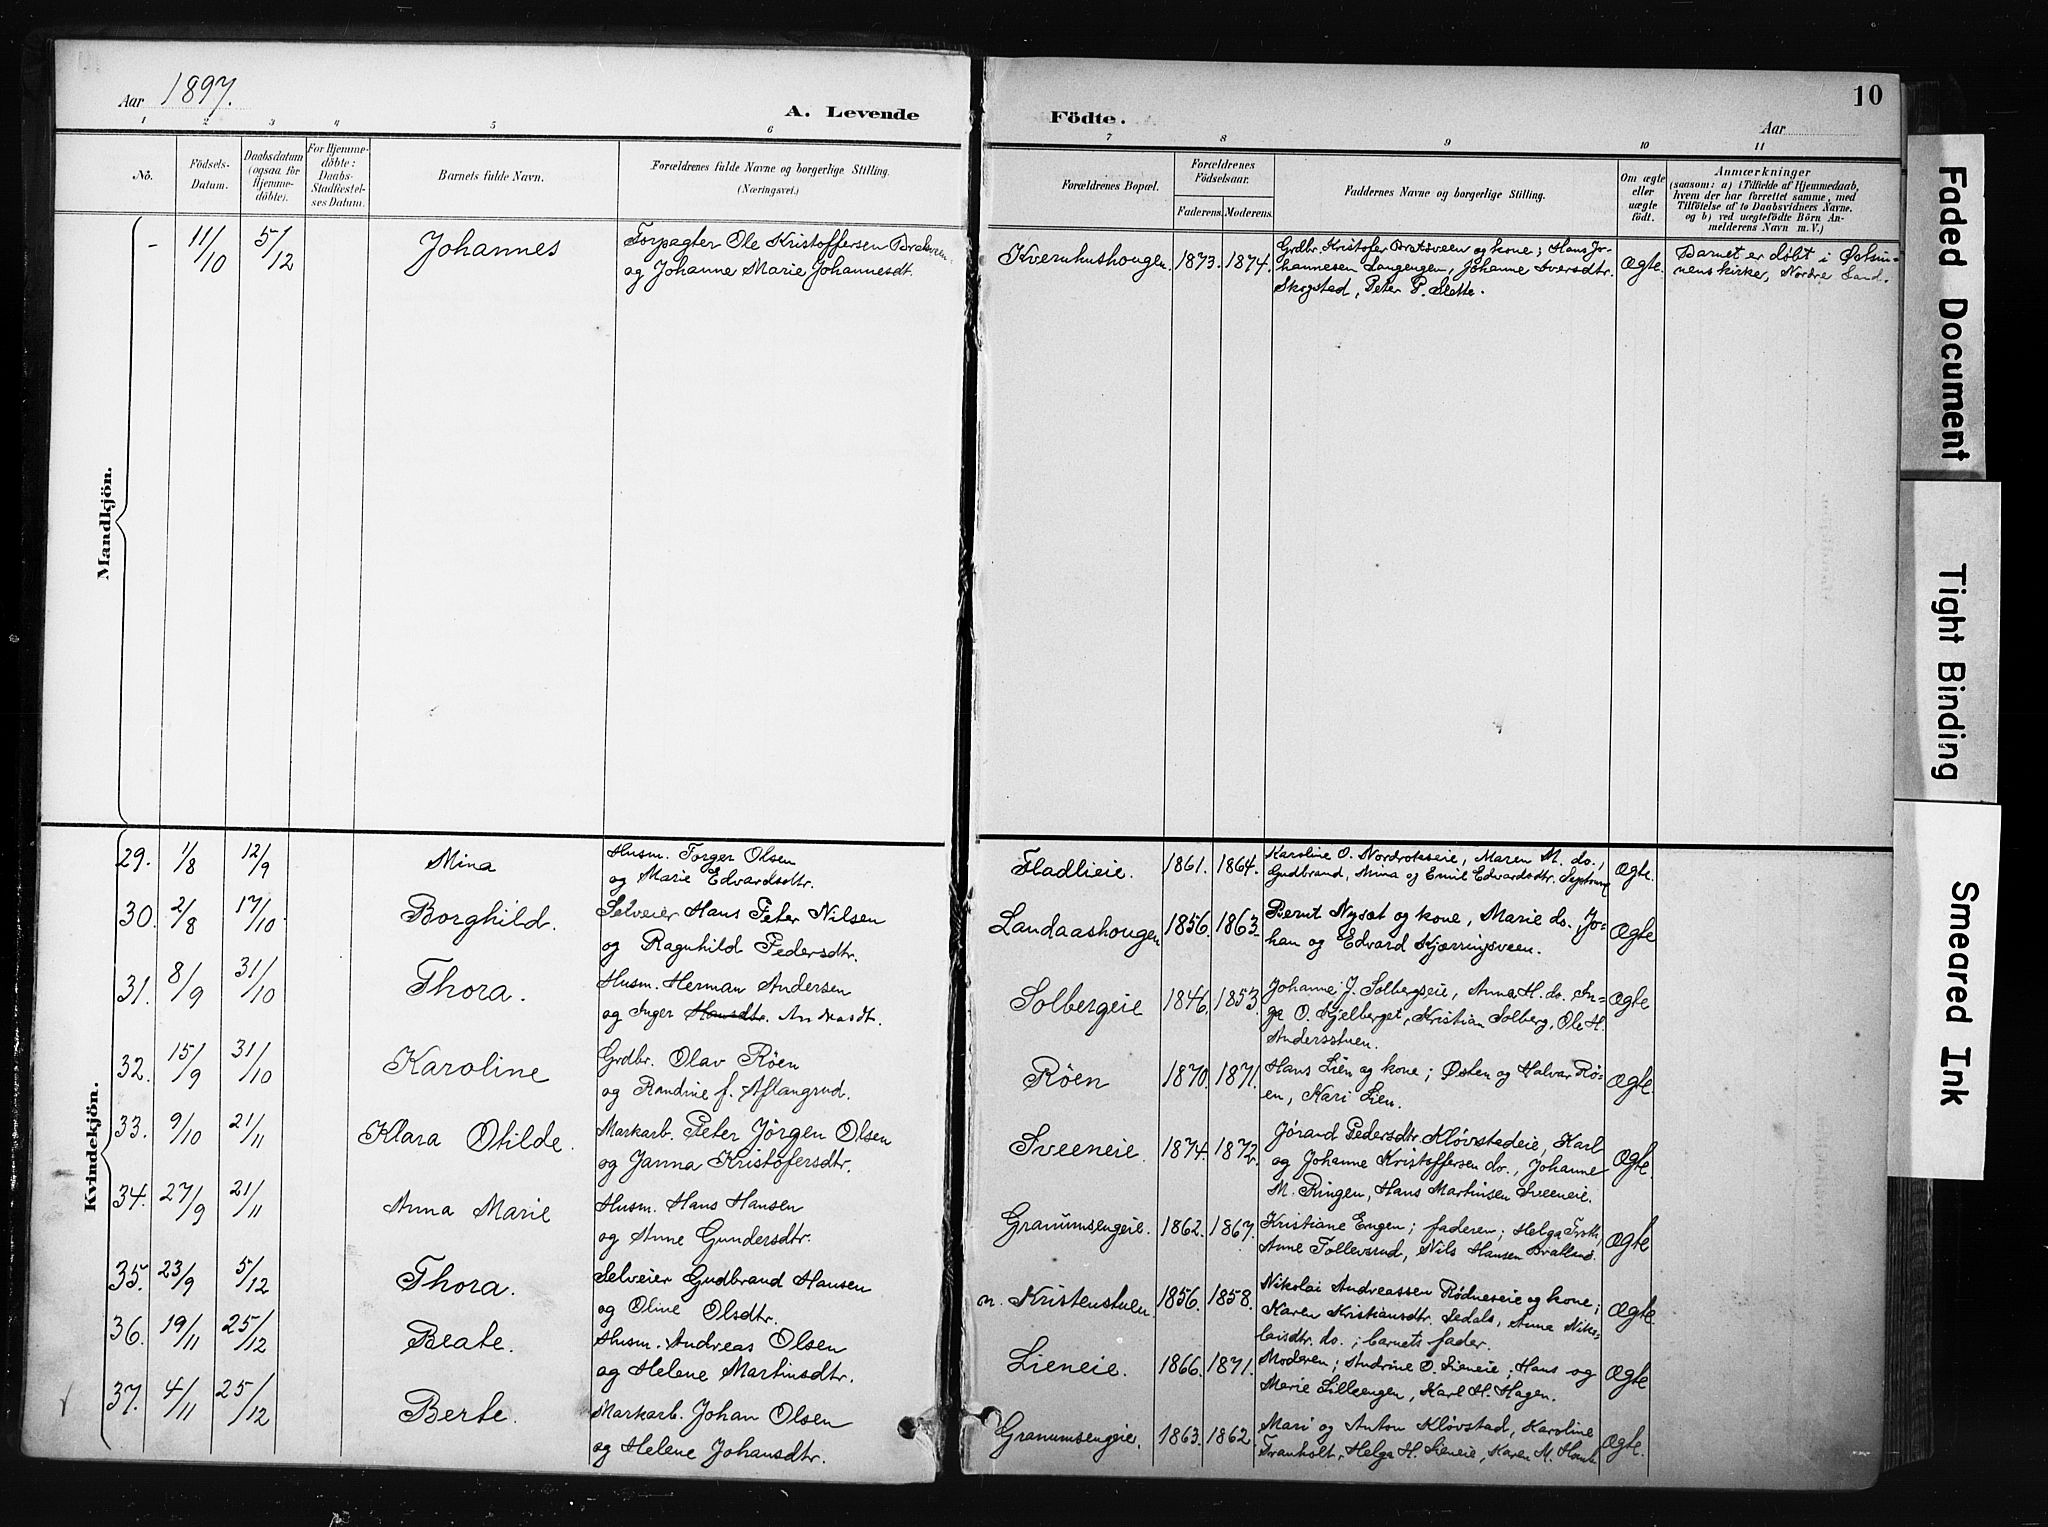 Aar 1897.
A. Levende
Födte.
Aar
10
1 2 3 4 5 6 7 8 9 10 11
No.
Födsels-
Datum.
Daabsdatum
(ogsaa for
Hjemme-
döbte).
For Hjemme-
döbte:
Daabs-
Stadfæstel-
ses Datum.
Barnets fulde Navn.
Forældrenes fulde Navne og borgerlige Stilling.
(Næringsvei.)
Forældrenes Bopæl.
Forældrenes
Födselsaar.
Faderens. Moderens.
Faddernes Navne og borgerlige Stilling.
Om ægte
eller
uægte
födt.
Anmærkninger
(saasom: a) i Tilfælde af Hjemmedaab,
hvem der har forrettet samme, med
Tilföielse af to Daabsvidners Navne.
og b) ved uægtefödte Börn An-
melderens Navn m. V.)
Mandkjön.
- 11/10 5/12 Johannes
Forpagter Ole Kristoffersen
og Johanne Marie Johannesdt.
Kvernhushougen. 1873. 1874.
Grdbr. Kristofer Bratsveen og kone; Hans Jo-
hannesen Langengen, Johanne Iversdtr.
Skogstad, Peter P. Slette.
Ægte.
Barnet er döbt i
kirke, Nordre Land.
Kvindekjön.
29. 1/8 12/9 Mina
Husm. Torger Olsen
og Marie Edvardsdtr.
Fladlieie. 1861. 1864.
Karoline O. Nordrokseie, Maren M. do.,
Gudbrand, Mina og Emil Edvardsdtr.
Ægte.
30. 2/8 17/10 Borghild.
Selveier Hans Peter Nilsen
og Ragnhild Pedersdtr.
Landaashougen 1856. 1863.
Bernt Nysæt og kone, Marie do., Jo-
han og Edvard Kjærringsveen.
Ægte
31. 8/9 31/10 Thora.
Husm. Herman Andersen
og Inger Hansdtr. Andreasdt.
Solbergeie 1846. 1853.
Johanne J. Solbergseie, Anna H. do. In-
ga O. Kjelberget, Kristian Solberg, Ole H.
Andersstuen.
Ægte
32. 15/9 31/10 Karoline
Grdbr. Olav Röen
og Randine f. Aflangrud.
Röen 1870. 1871.
Hans Lien og kone; Østen og Halvar Rö-
en, Kari Lien.
Ægte.
33. 9/10 21/11 Klara Otilde.
Markarb. Peter Jörgen Olsen
og Janna Kristofersdtr.
Sveeneie. 1874. 1872.
Jörand Pedersdtr. Klövstadeie, Karl
og Johanne Kristoffersen do., Johanne
M. Ringen, Hans Martinsen Sveeneie.
Ægte.
34. 27/9 21/11 Anna Marie
Husm. Hans Hansen
og Anne Gundersdtr.
Granumsengeie. 1862. 1867.
Kristiane Engen; faderen; Helga
Anne Tollevsrud, Nils Hansen
Ægte
35. 23/9 5/12 Thora.
Selveier Gudbrand Hansen
og Oline Olsdtr.
n. Kristenstuen. 1856. 1858.
Nikolai Andreassen Rödneseie og kone;
Karen Kristiansdtr. Sedals, Anna Niko-
laisdtr. do.; barnets fader.
Ægte.
36. 19/11 25/12 Beate.
Husm. Andreas Olsen
og Helene Martinsdtr.
Lieneie. 1866. 1871.
Moderen; Andrine O. Lieneie; Hans og
Marie Lilleengen, Karl H. Hagen.
Ægte
37. 4/11 25/12 Berte.
Markarb. Johan Olsen
og Helene Johansdtr.
Granumsengeie. 1863. 1862.
Mari og Anton Klövstad, Karoline
Granholt, Helga H. Lieneie, Karen M.
Ægte.
Faded Document
Tight Binding
Smeared Ink